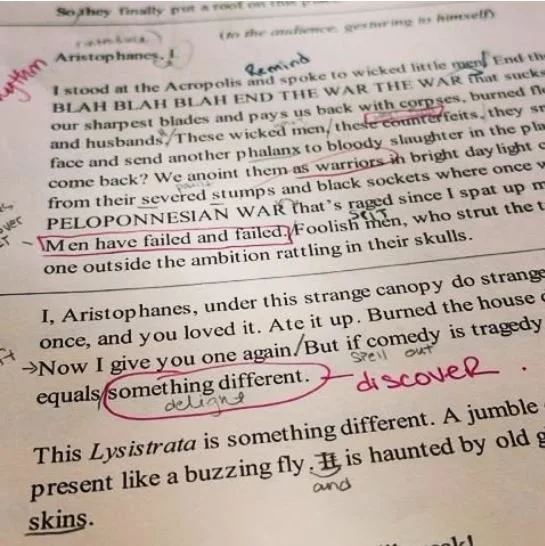 So they finally put a roof on this
(to the audience, gesturing to himself)
Aristophanes. I.
Remind
I stood at the Acropolis and spoke to wicked little men/ End th
BLAH BLAH BLAH END THE WAR THE WAR that sucks
our sharpest blades and pays us back with corpses, burned fl
and husbands/These wicked men/these counterfeits, they sn
face and send another phalanx to bloody slaughter in the pla
come back? We anoint them as warriors in bright day light
from their severed stumps and black sockets where once w
PELOPONNESIAN WAR that's raged since I spat up m
SPIT
Men have failed and failed./Foolish men, who strut the t
one outside the ambition rattling in their skulls.
I, Aristophanes, under this strange canopy do strange
once, and you loved it. Ate it up. Burned the house
→Now I give you one again/But if comedy is tragedy
spell out
equals/something different. discover.
delight
This Lysistrata is something different. A jumble
present like a buzzing fly. It is haunted by old g
and
skins.